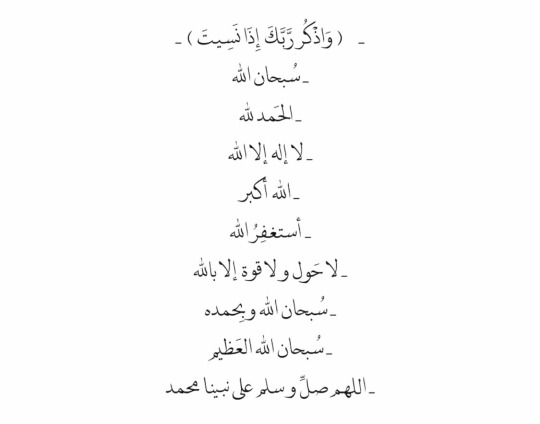 ـ (وَاذْكُر رَّبَّكَ إِذَا نَسِيتَ) ـ
ـ سُبحان الله
ـ الحَمد لله
ـ لا إله إلا الله
ـ الله أكبر
ـ أستغفِرُ الله
ـ لا حَول و لا قوة إلا بالله
ـ سُبحان الله وبِحمده
ـ سُبحان الله العَظيم
ـ اللهم صلِّ و سلم على نبينا محمد